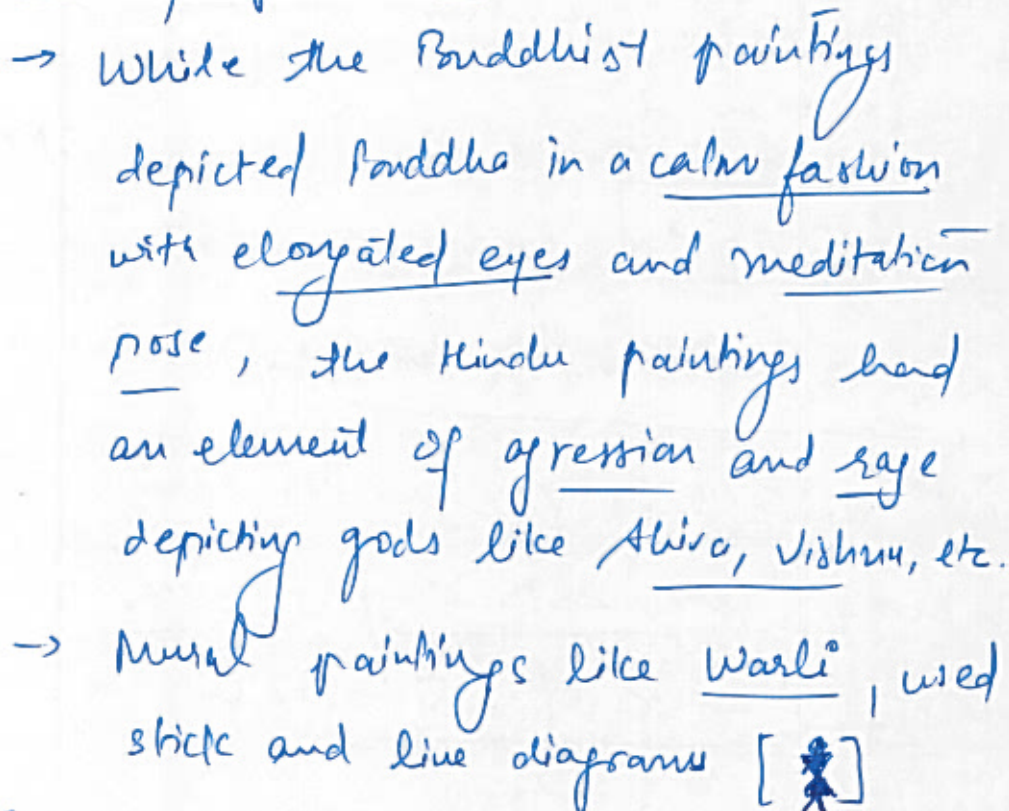 → While the Buddhist paintings
depicted Buddha in a calm fashion
with elongated eyes and meditation
pose, the Hindu paintings had
an element of agression and rage
depicting gods like Shiva, Vishnu, etc.
→ Mural paintings like Warli, used
stick and line diagrams [ ]